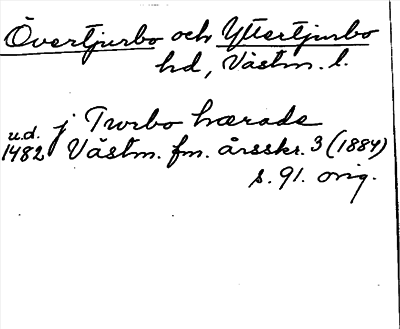 Övertjurbo och Yttertjurbo
hd, Västm. l.
u.d. j Tworbo hærade
1482 Västm. fm. årsskr. 3 (1884)
s. 91. orig.